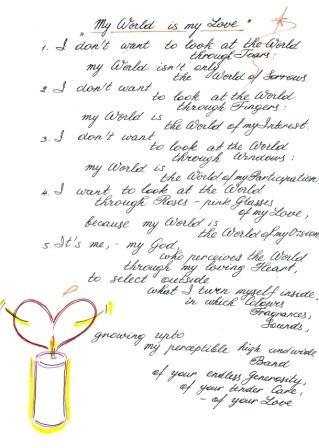 "My World is my Love"
1. I don't want to look at the World
through Tears:
my World isn't only
the World of Sorrows
2 I don't want
to look at the World
through Fingers:
my World is
the World of my Interest.
3. I don't want
to look at the World
through Windows:
my World is
the World of my Participation
4. I want to look at the World
through Roses-pink Glasses
of my Love,
because my World is
the World of my Vision
5. It's me, - my God,
who perceives the World
through my loving Heart,
to select outside
what I turn myself inside,
in which Colours
Fragrances,
Sounds,
growing upto
my perceptible high and wide
Band
of your endless Generosity,
of your tender Care,
- of your Love